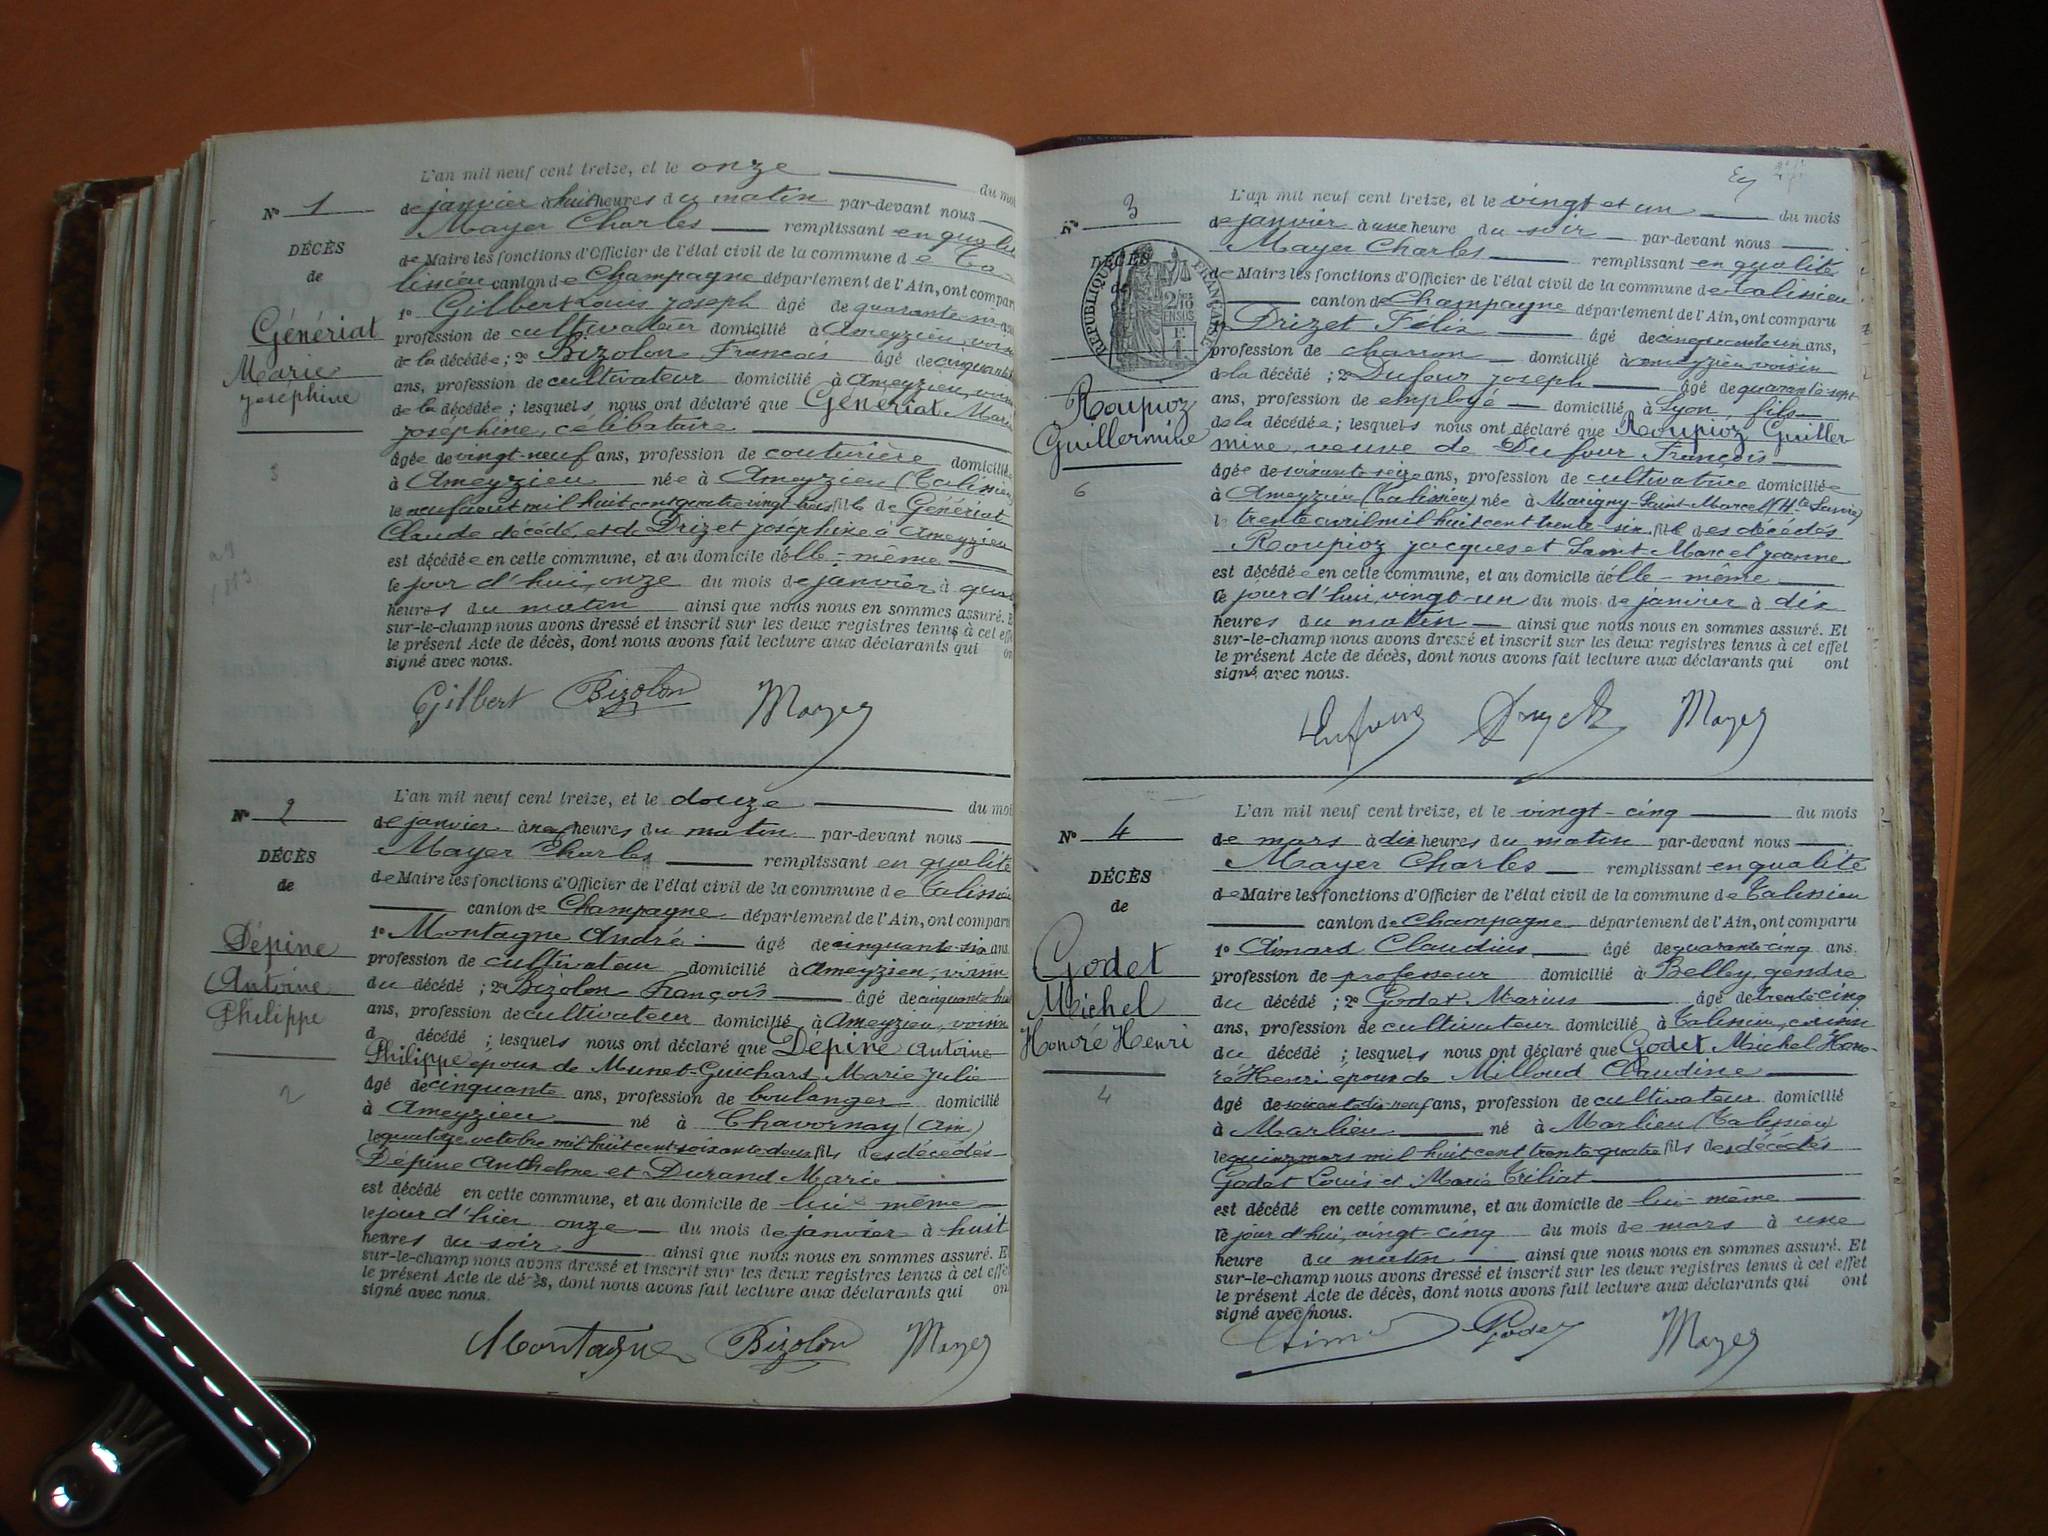 L'an mil neuf cent treize, et le onze du moi
N° 1
de janvier à huit heures du matin par-devant nous
Mayer Charles remplissant en qualité
DÉCÈS
de Maire les fonctions d'Officier de l'état civil de la commune de Ta
de
lissieu canton de Champagne département de l'Ain, ont comparu
1° Gilbert Louis Joseph âgé de quarante-six ans
Génériat
profession de cultivateur domicilié à Ameyzieu, voisin
Marie
de la décédée ; 2° Bizolon François âgé de cinquante
Joséphine
ans, profession de cultivateur domicilié à Ameyzieu, voisin
de la décédée ; lesquels nous ont déclaré que Génériat Marie
Joséphine, célibataire
âgée de vingt-neuf ans, profession de couturière domiciliée
3
à Ameyzieu née à Ameyzieu (Talissieu)
le neuf août mil huit cent quatre vingt trois fille de Génériat
Claude décédé, et de Drizet Joséphine à Ameyzieu
est décédée en cette commune, et au domicile d'elle-même
le jour d'hui, onze du mois de janvier à quat
heures du matin ainsi que nous nous en sommes assuré. E
sur-le-champ nous avons dressé et inscrit sur les deux registres tenus à cet effe
le présent Acte de décès, dont nous avons fait lecture aux déclarants qui on
signé avec nous.
Gilbert Bizolon Mayer
L'an mil neuf cent treize, et le douze du moi
N° 2
de janvier à neuf heures du matin par-devant nous
Mayer Charles remplissant en qualité
DÉCÈS
de Maire les fonctions d'Officier de l'état civil de la commune de Talissieu
de
canton de Champagne département de l'Ain, ont comparu
1° Montagne André âgé de cinquante-six ans
Dépine
profession de cultivateur domicilié à Ameyzieu, voisin
Antoine
du décédé ; 2° Bizolon François âgé de cinquante hui
Philippe
ans, profession de cultivateur domicilié à Ameyzieu, voisin
d décédé ; lesquels nous ont déclaré que Dépine Antoine
Philippe époux de Munet-Guichard Marie Julie
âgé de cinquante ans, profession de boulanger domicilié
2
à Ameyzieu né à Chavornay (Ain)
le quatorze octobre mil huit cent soixante deux fils des décédés
Dépine Anthelme et Durand Marie
est décédé en cette commune, et au domicile de lui-même
le jour d'hier onze du mois de janvier à huit
heures du soir ainsi que nous nous en sommes assuré. E
sur-le-champ nous avons dressé et inscrit sur les deux registres tenus à cet effe
le présent Acte de décès, dont nous avons fait lecture aux déclarants qui on
signé avec nous.
Montagne Bizolon Mayer
L'an mil neuf cent treize, et le vingt et un du mois
N° 3
de janvier à une heure du soir par-devant nous
Mayer Charles remplissant en qualité
DÉCÈS
de Maire les fonctions d'Officier de l'état civil de la commune de Talissieu
de
RÉPUBLIQUE FRANÇAISE
canton de Champagne département de l'Ain, ont comparu
1° Drizet Félix âgé de cinquante un ans,
profession de charron domicilié à Ameyzieu voisin
de la décédé ; 2° Dufour Joseph âgé de quarante-sept
Roupioz
ans, profession de employé domicilié à Lyon, fils
Guillermine
de la décédée ; lesquels nous ont déclaré que Roupioz Guiller-
mine, veuve de Dufour François
âgée de soixante seize ans, profession de cultivatrice domiciliée
6
à Ameyzieu (Talissieu) née à Marigny-Saint-Marcel (Hte Savoie)
le trente avril mil huit cent trente-six fille des décédés
Roupioz Jacques et Saint-Marcel Jeanne
est décédée en cette commune, et au domicile d'elle-même
le jour d'hui, vingt-un du mois de janvier à dix
heures du matin ainsi que nous nous en sommes assuré. Et
sur-le-champ nous avons dressé et inscrit sur les deux registres tenus à cet effet
le présent Acte de décès, dont nous avons fait lecture aux déclarants qui ont
signé avec nous.
Dufour Mayer
L'an mil neuf cent treize, et le vingt-cinq du mois
N° 4
de mars à dix heures du matin par-devant nous
Mayer Charles remplissant en qualité
DÉCÈS
de Maire les fonctions d'Officier de l'état civil de la commune de Talissieu
de
canton de Champagne département de l'Ain, ont comparu
1° Aimard Claudius âgé de quarante-cinq ans.
Godet
profession de professeur domicilié à Belley, gendre
Michel
du décédé ; 2° Godet Marius âgé de trente-cinq
Honoré Henri
ans, profession de cultivateur domicilié à Talissieu, cousin
du décédé ; lesquels nous ont déclaré que Godet Michel Hono-
ré Henri époux de Milloud Claudine
âgé de soixante dix-neuf ans, profession de cultivateur domicilié
4
à Marlieu né à Marlieu (Talissieu)
le quinze mars mil huit cent trente quatre fils des décédés
Godet Louis et Marie Triliat
est décédé en cette commune, et au domicile de lui-même
le jour d'hui, vingt-cinq du mois de mars à une
heure du matin ainsi que nous nous en sommes assuré. Et
sur-le-champ nous avons dressé et inscrit sur les deux registres tenus à cet effet
le présent Acte de décès, dont nous avons fait lecture aux déclarants qui ont
signé avec nous.
Godet Mayer